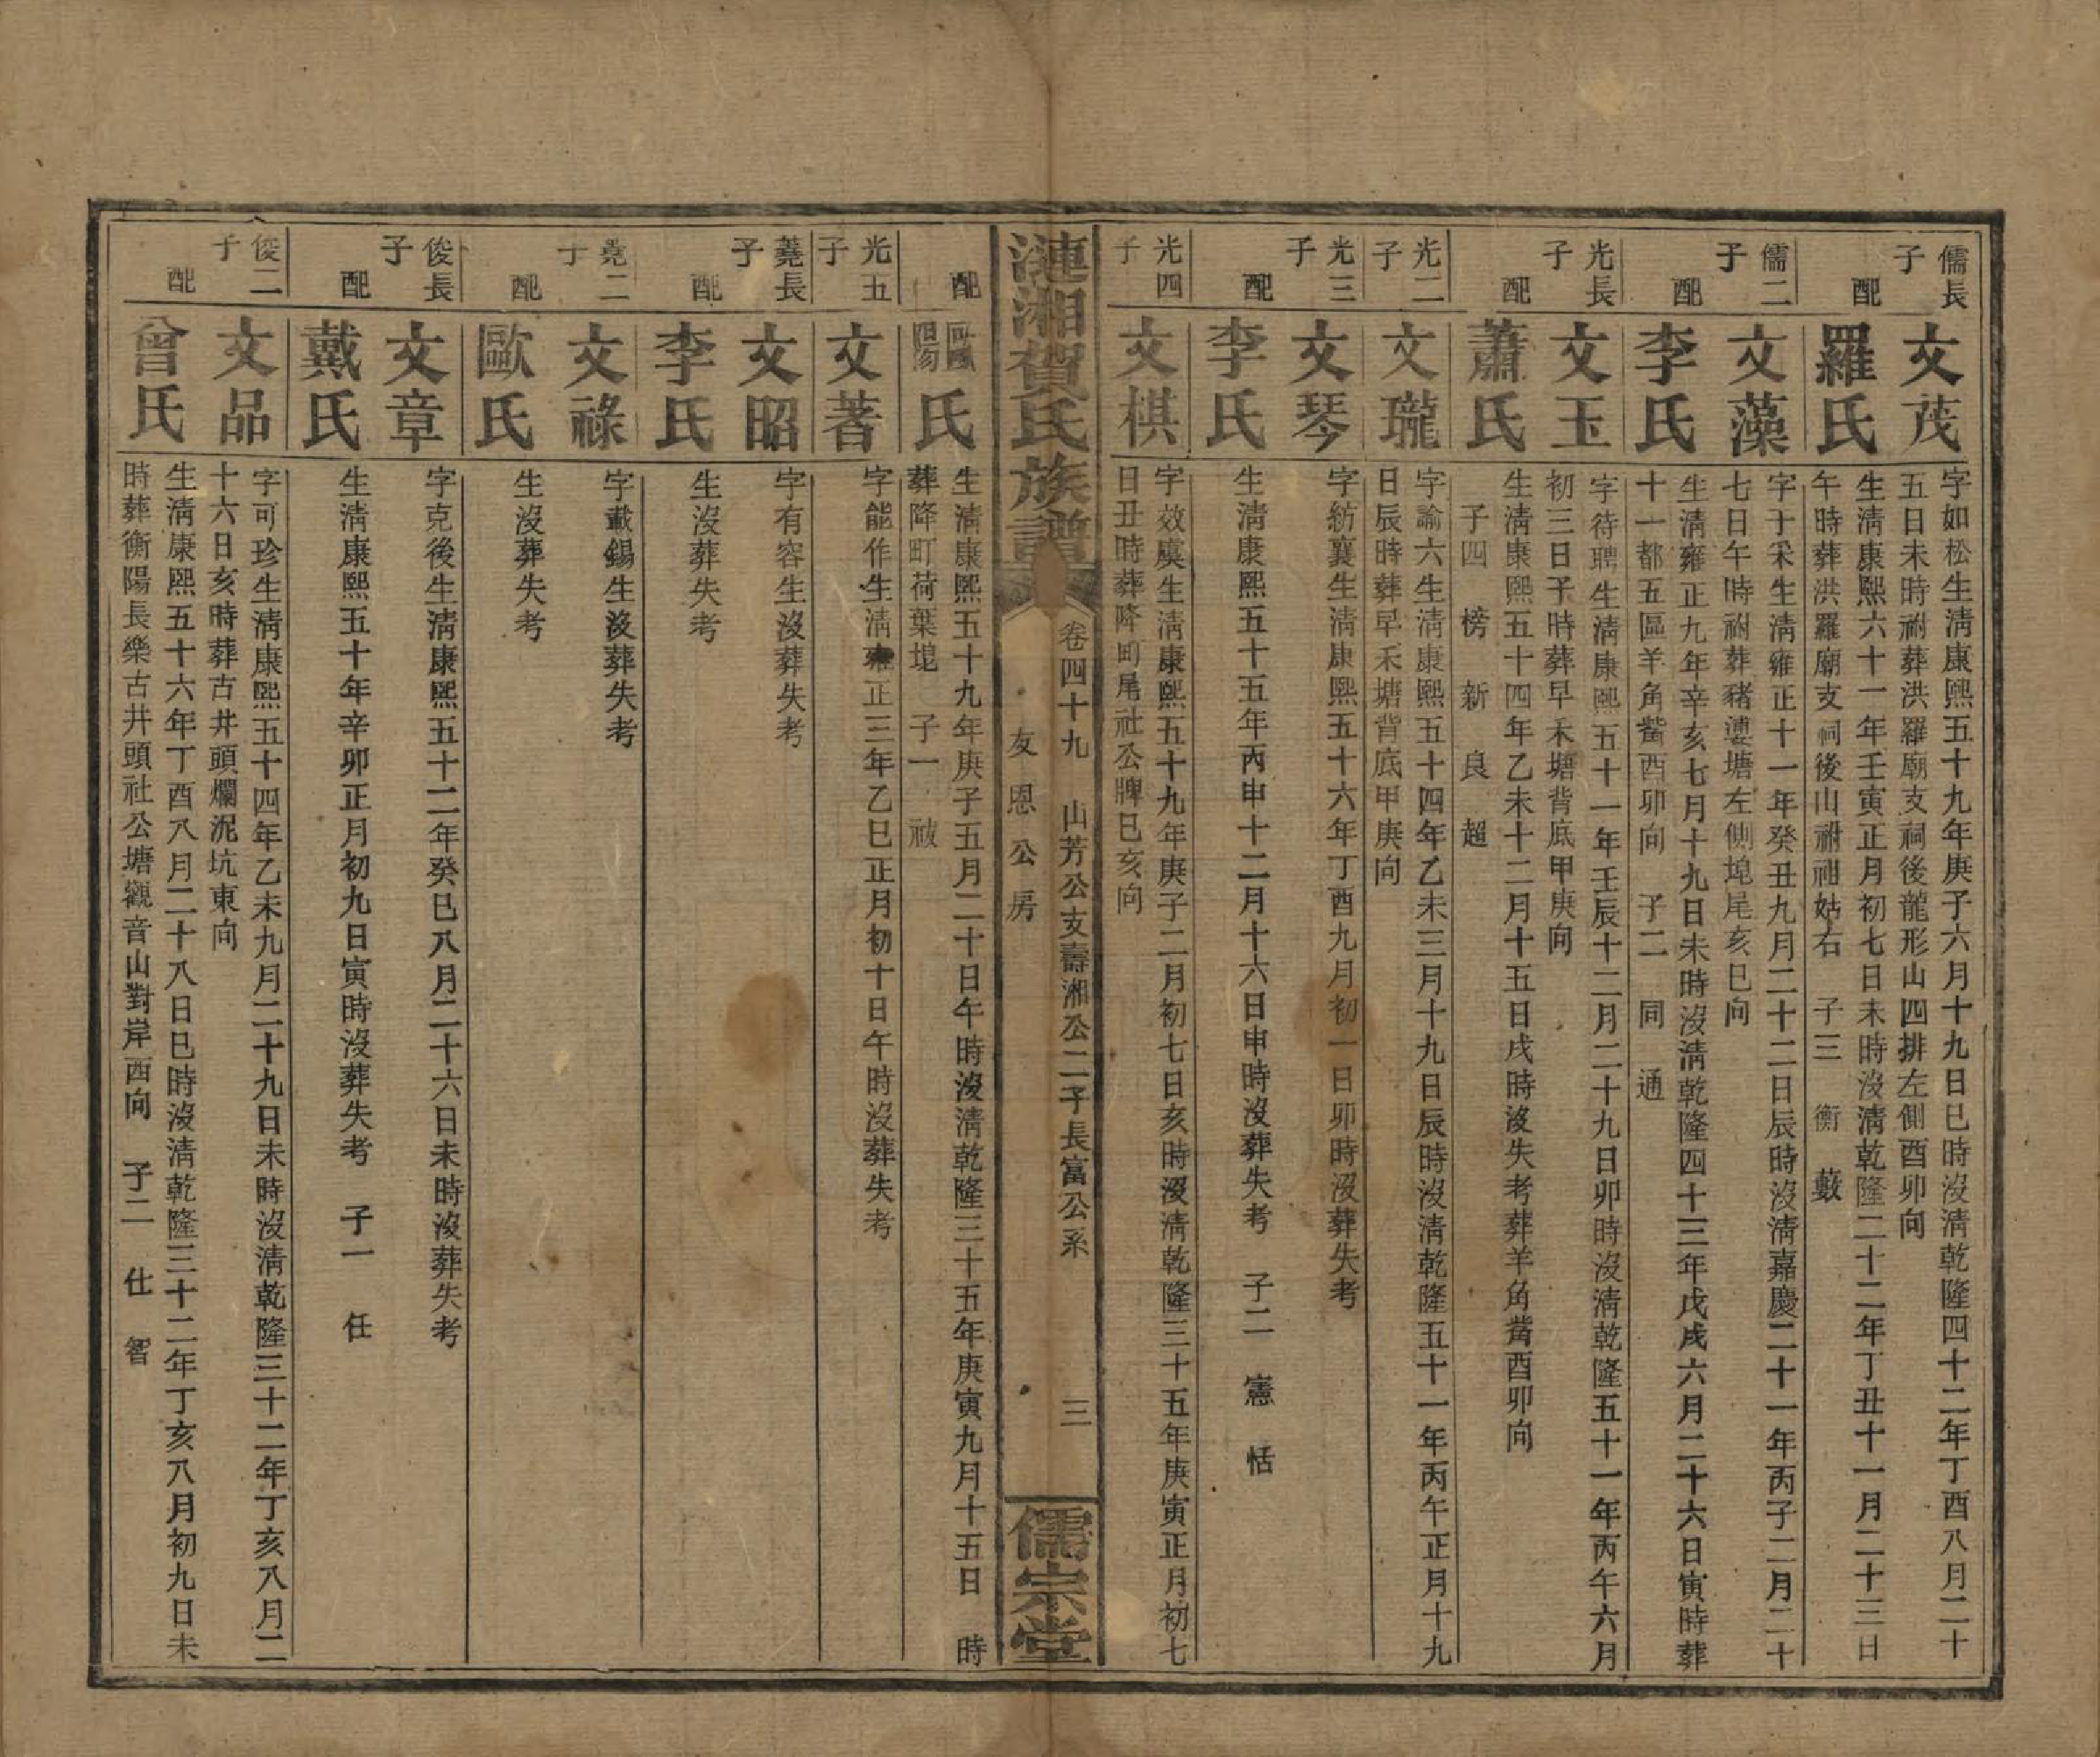 儒長子
文茂
字如松生清康熙五十九年庚子六月十九日巳時沒清乾隆四十二年丁酉八月二十
五日未時祔葬洪羅廟支祠後龍形山四排左側酉卯向
配
羅氏
生清康熙六十一年壬寅正月初七日未時沒清乾隆二十二年丁丑十一月二十三日
午時葬洪羅廟支祠後山祔祖姑右 子三 衡 藪
儒二子
文藻
字于采生清雍正十一年癸丑九月二十二日辰時沒清嘉慶二十一年丙子二月二十
七日午時祔葬豬婆塘左側塊尾亥巳向
配
李氏
生清雍正九年辛亥七月十九日未時沒清乾隆四十三年戊戌六月二十六日寅時葬
十一都五區羊角觜酉卯向 子二 同 通
光長子
文玉
字待聘生清康熙五十一年壬辰十二月二十九日卯時沒清乾隆五十一年丙午六月
初三日子時葬早禾塘背底甲庚向
配
蕭氏
生清康熙五十四年乙未十二月十五日戌時沒失考葬羊角觜酉卯向
子四 榜 新 良 超
光二子
文瓏
字諭六生清康熙五十四年乙未三月十九日辰時沒清乾隆五十一年丙午正月十九
日辰時葬早禾塘背底甲庚向
光三子
文琴
字紡襄生清康熙五十六年丁酉九月初一日卯時沒葬失考
配
李氏
生清康熙五十五年丙申十二月十六日申時沒葬失考 子二 憲 恬
光四子
文棋
字效虞生清康熙五十九年庚子二月初七日亥時沒清乾隆三十五年庚寅正月初七
日丑時葬降町尾社公牌巳亥向
漣湘賀氏族譜
卷四十九 山芳公支壽湘公二子長富公系 三
友恩公房
儒宗堂
配
歐陽氏
生清康熙五十九年庚子五月二十日午時沒清乾隆三十五年庚寅九月十五日 時
葬降町荷葉塊 子一 祓
光五子
文蓍
字能作生清雍正三年乙巳正月初十日午時沒葬失考
蕘長子
文昭
字有容生沒葬失考
配
李氏
生沒葬失考
蕘二子
文祿
字載錫生沒葬失考
配
歐氏
生沒葬失考
俊長子
文章
字克後生清康熙五十二年癸巳八月二十六日未時沒葬失考
配
戴氏
生清康熙五十年辛卯正月初九日寅時沒葬失考 子一 任
俊二子
文品
字可珍生清康熙五十四年乙未九月二十九日未時沒清乾隆三十二年丁亥八月二
十六日亥時葬古井頭爛泥坑東向
配
曾氏
生清康熙五十六年丁酉八月二十八日巳時沒清乾隆三十二年丁亥八月初九日未
時葬衡陽長樂古井頭社公塘觀音山對岸西向 子二 仕 智